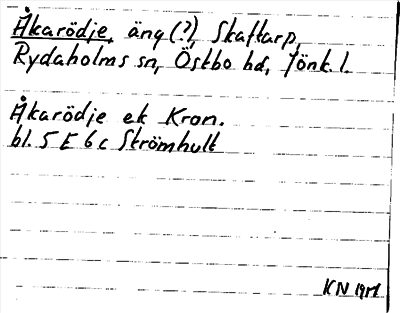 Åkarödje, äng (?), Skaftarp,
Rydaholms sn, Östbo hd, Jönk. l.
Åkarödje ek Kron.
bl. 5 E 6 c Strömhult
KN